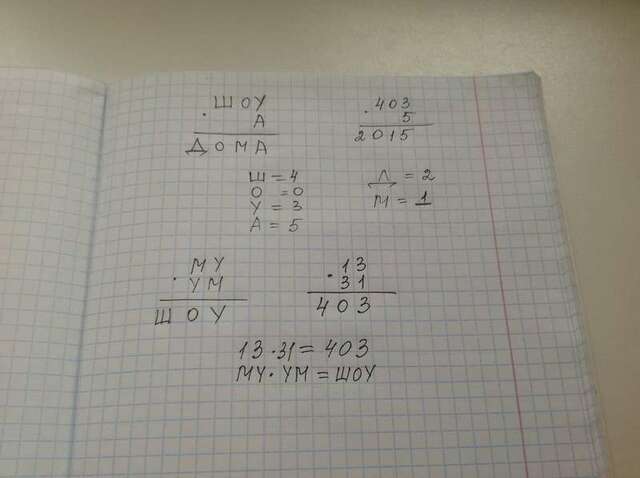 ШОУ
· А
ДОМА
· 403
5
2015
Ш = 4
О = 0
У = 3
А = 5
Д = 2
М = 1
МУ
· УМ
ШОУ
· 13
31
403
13 · 31 = 403
МУ · УМ = ШОУ